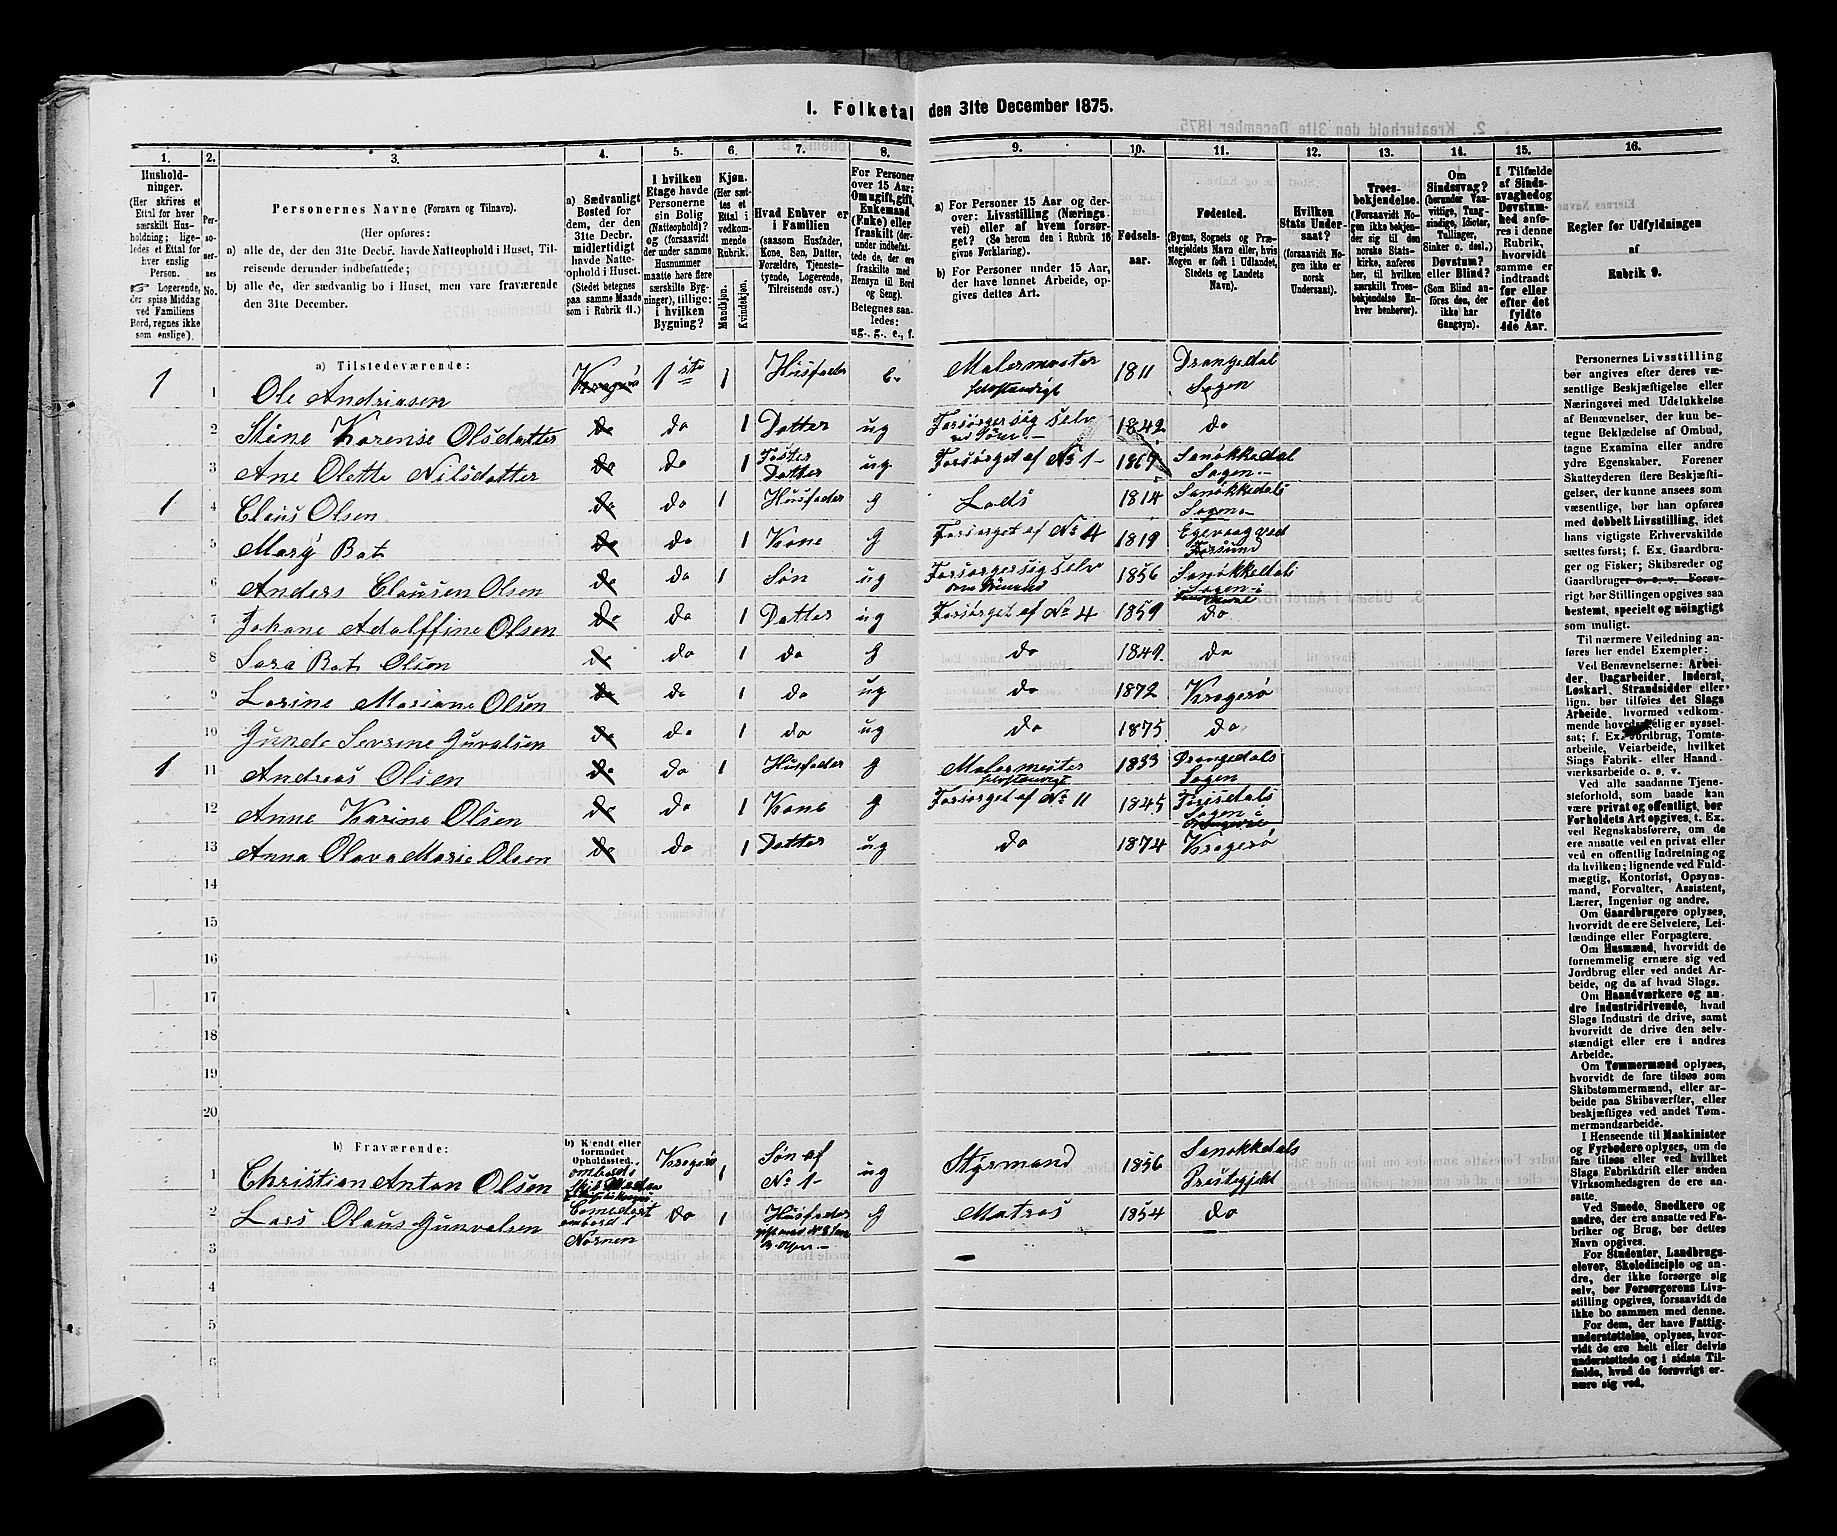 I. Folketal den 31te December 1875.
1. 2. 3. 4. 5. 6. 7. 8. 9. 10. 11. 12. 13. 14. 15. 16.
Hushold-
ninger.
(Her skrives et
Ettal for hver
særskilt Hus-
holdning; lige-
ledes et Ettal
for hver enslig
Person.
Logerende,
der spise Middag
ved Familiens
Bord, regnes ikke
som enslige).
Per-
so-
ner-
nes
No.
Personernes Navne (Fornavn og Tilnavn).
(Her opføres:
a) alle de, der den 31te Decbr. havde Natteophold i Huset, Til-
reisende derunder indbefattede;
b) alle de, der sædvanlig bo i Huset, men vare fraværende
den 31te December.
a) Sædvanligt
Bosted for
dem, der den
31te Decbr.
midlertidigt
havde Natte-
ophold i Huset.
(Stedet betegnes
paa samme Maade
som i Rubrik 11.)
I hvilken
Etage havde
Personerne
sin Bolig
(Natteophold)?
og (forsaavidt
der under samme
Husnummer
maatte høre flere
særskilte Byg-
ninger), tillige:
i hvilken
Bygning?
Kjøn.
(Her sæt-
tes et
Ettal i
vedkom-
mende
Rubrik.
Mandskjøn.
Kvindekjøn.
Hvad Enhver er
i Familien
(saasom Husfader,
Kone, Søn, Datter,
Forældre, Tjeneste-
tyende, Logerende,
Tilreisende osv.)
For Personer
over 15 Aar:
Om ugift, gift,
Enkemand
(Enke) eller
fraskilt (der-
under indbefat-
tede de, der ere
fraskilte med
Hensyn til Bord
og Seng).
Betegnes saa-
ledes:
ug., g., e., f.
a) For Personer 15 Aar og der-
over: Livsstilling (Nærings-
vei) eller af hvem forsør-
get? (Se herom den i Rubrik 16
givne Forklaring).
b) For Personer under 15 Aar,
der have lønnet Arbeide, op-
gives dettes Art.
Fødsels-
aar.
Fødested.
(Byens, Sognets og Præ-
stegjeldets Navn eller, hvis
Nogen er født i Udlandet,
Stedets og Landets
Navn).
Hvilken
Stats Under-
saat?
(forsaavidt No-
gen ikke er
norsk
Undersaat).
Troes-
bekjendelse.
(Forsaavidt No-
gen ikke bekjen-
der sig til den
norske Stats-
kirke, anføres
her, til hvilken
særskilt Troes-
bekjendelse En-
hver henhører).
Om
Sindssvag?
(herunder Van-
vittige, Tung-
sindige, Idioter,
Tullinger,
Sinker o. desl.)
Døvstum?
eller Blind?
(Som Blind an-
føres den, der
ikke har
Gangsyn).
I Tilfælde
af Sinds-
svaghed og
Døvstum-
hed anfø-
res i denne
Rubrik,
hvorvidt
samme er
indtraadt
før eller
efter det
fyldte
4de Aar.
Regler for Udfyldningen
af
Rubrik 9.
a) Tilstedeværende:
1 1 Ole Andriasen Kragerø 1ste 1 Husfader e. Malermester selvstændigt 1811 Drangedal Sogn
2 Stine Karense Olsdatter do do 1 Datter ug Forsørger sig selv 1842 do
3 Ane Olette Nilsdatter do do 1 Foster Datter ug Forsørget af No 1 Sanøkkedal Sogen
1 4 Claus Olsen do do 1 Husfader g Lods 1814 Sanøkkedals Sogen
5 Mary Bat do do 1 Kone g Forsørget af No 4 1819
6 Anders Clausen Olsen do do 1 Søn ug Forsørger sig selv 1856 Sanøkkedals Sogen
7 Johane Adolffine Olsen do do 1 Datter ug Forsørget af No 4 1859 do
8 Sara Bat Olsen do do 1 do g do 1849 do
9 Lorine Mariane Olsen do do 1 do ug do 1872 Kragerø
10 Gunda Sevrine Gunvalsen do do 1 do ug do 1875 do
1 11 Andreas Olsen do do 1 Husfader g Malermester selvstændigt 1833 Drangedals Sogen
12 Anne Karine Olsen do do 1 Kone g Forsørget af No 11 1845 Sogen
13 Anna Olava Marie Olsen do do 1 Datter ug do 1874 Kragerø
14
15
16
17
18
19
20
b) Fraværende:
b) Kjendt eller
formodet
Opholdssted.
1 Christian Anton Olsen ombord i Kragerø 1 Søn af No 1 ug Styrmand 1856 Sanøkkedals Prestegjeld
2 Lars Olaus Gunvalsen ombord i Nornen do 1 Husfader g Matros 1854 do
3
4
5
6
Personernes Livsstilling
bør angives efter deres væ-
sentlige Beskjæftigelse eller
Næringsvei med Udelukkelse
af Benævnelser, der kun be-
tegne Beklædelse af Ombud,
tagne Examina eller andre
ydre Egenskaber. Forener
Skatteyderen flere Beskjæfti-
gelser, der kunne ansees som
væsentlige, bør han opføres
med dobbelt Livsstilling, idet
hans vigtigste Erhvervskilde
sættes først; f. Ex. Gaardbru-
ger og Fisker; Skibsreder og
Gaardbruger o. s. v. Forøv-
rigt bør Stillingen opgives saa
bestemt, specielt og nøiagtigt
som muligt.
Til nærmere Veiledning an-
føres her endel Exempler:
Ved Benævnelserne: Arbei-
der, Dagarbeider, Inderst,
Løskarl, Strandsidder eller
lign. bør tilføies det Slags
Arbeide, hvormed vedkom-
mende hovedsagelig er syssel-
sat; f. Ex. Jordbrug, Tomte-
arbeide, Veiarbeide, hvilket
Slags Fabrik- eller Haand-
værksarbeide o. s. v.
Ved alle saadanne Tjene-
steforhold, som baade kan
være privat og offentlig, bør
Forholdets Art opgives, t. Ex.
ved Regnskabsførere, om de
ere ansatte ved en privat eller
ved en offentlig Indretning og
da hvilken; lignende ved Fuld-
mægtig, Kontorist, Opsyns-
mand, Forvalter, Assistent,
Lærer, Ingeniør og andre.
Om Gaardbrugere oplyses,
hvorvidt de ere Selveiere, Lei-
lændinge eller Forpagtere.
Om Husmænd, hvorvidt de
fornemmelig ernære sig ved
Jordbrug eller ved andet Ar-
beide, og da af hvad Slags.
Om Haandværkere og an-
dre Industridrivende, hvad
Slags Industri de drive, samt
hvorvidt de drive den selv-
stændigt eller ere i andres
Arbeide.
Om Tømmermænd oplyses,
hvorvidt de fare tilsøs som
Skibstømmermænd, eller ar-
beide paa Skibsværfter, eller
beskjæftiges ved andet Tøm-
mermandsarbeide.
I Henseende til Maskinister
og Fyrbødere oplyses, om de
fare tilsøs eller ved hvilket
Slags Fabrikdrift eller anden
Virksomhedsgren de ere an-
satte.
Ved Smede, Snedkere og
andre, der ere ansatte ved Fa-
briker og Brug, bør dettes
Navn opgives.
For Studenter, Landbrugs-
elever, Skoledisciple og an-
dre, der ikke forsørge sig
selv, bør Forsørgerens Livs-
stilling opgives, forsaavidt de
ikke bo sammen med denne.
For dem, der have Fattig-
understøttelse, oplyses, hvor-
vidt de ere helt eller delvis
understøttede og i sidste Til-
fælde, hvad de forøvrigt er-
nære sig ved.